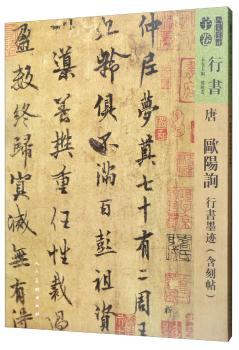 行書
唐 歐陽詢
行書墨迹（含刻帖）
仲尼夢奠七十有二周王
九齡俱不滿百彭祖資
導養樊重任性裁過
盈數終歸冥滅無有得